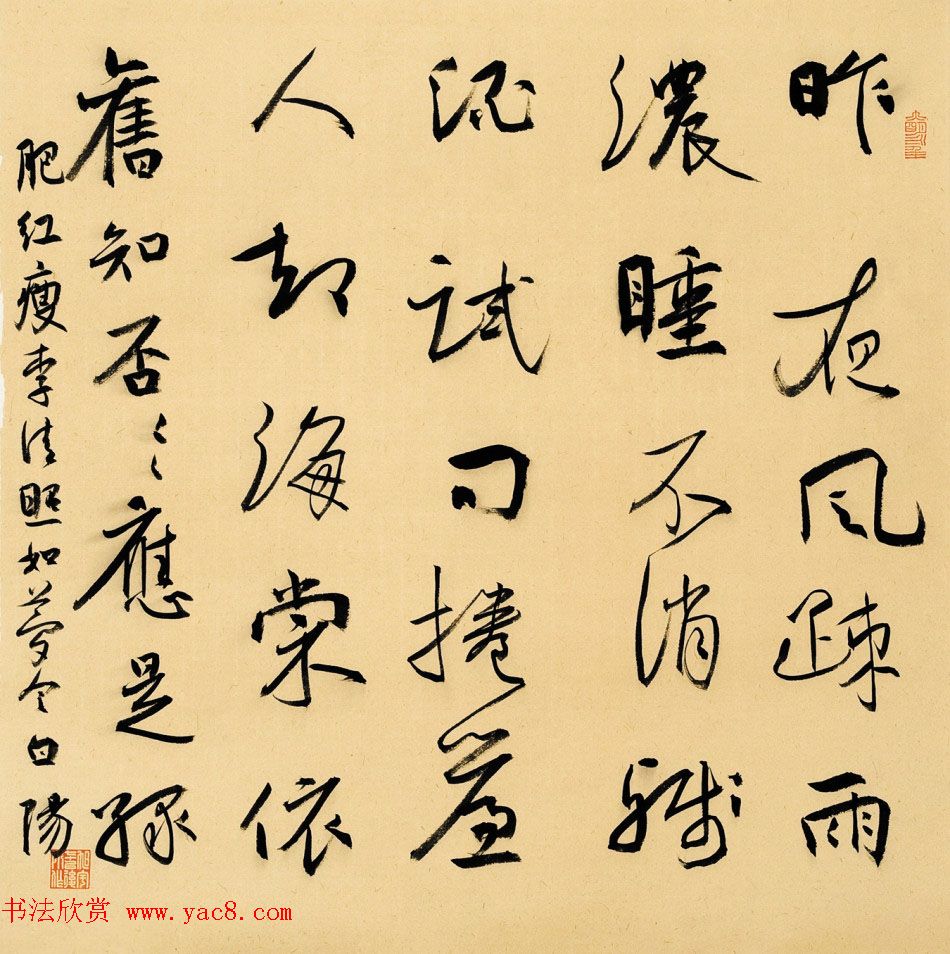 昨夜风疎雨
濃睡不消残
酒試问捲簾
人却海棠依
舊知否〻〻應是緑
肥红瘦李清照如夢令白陽
书法欣赏 www.yac8.com